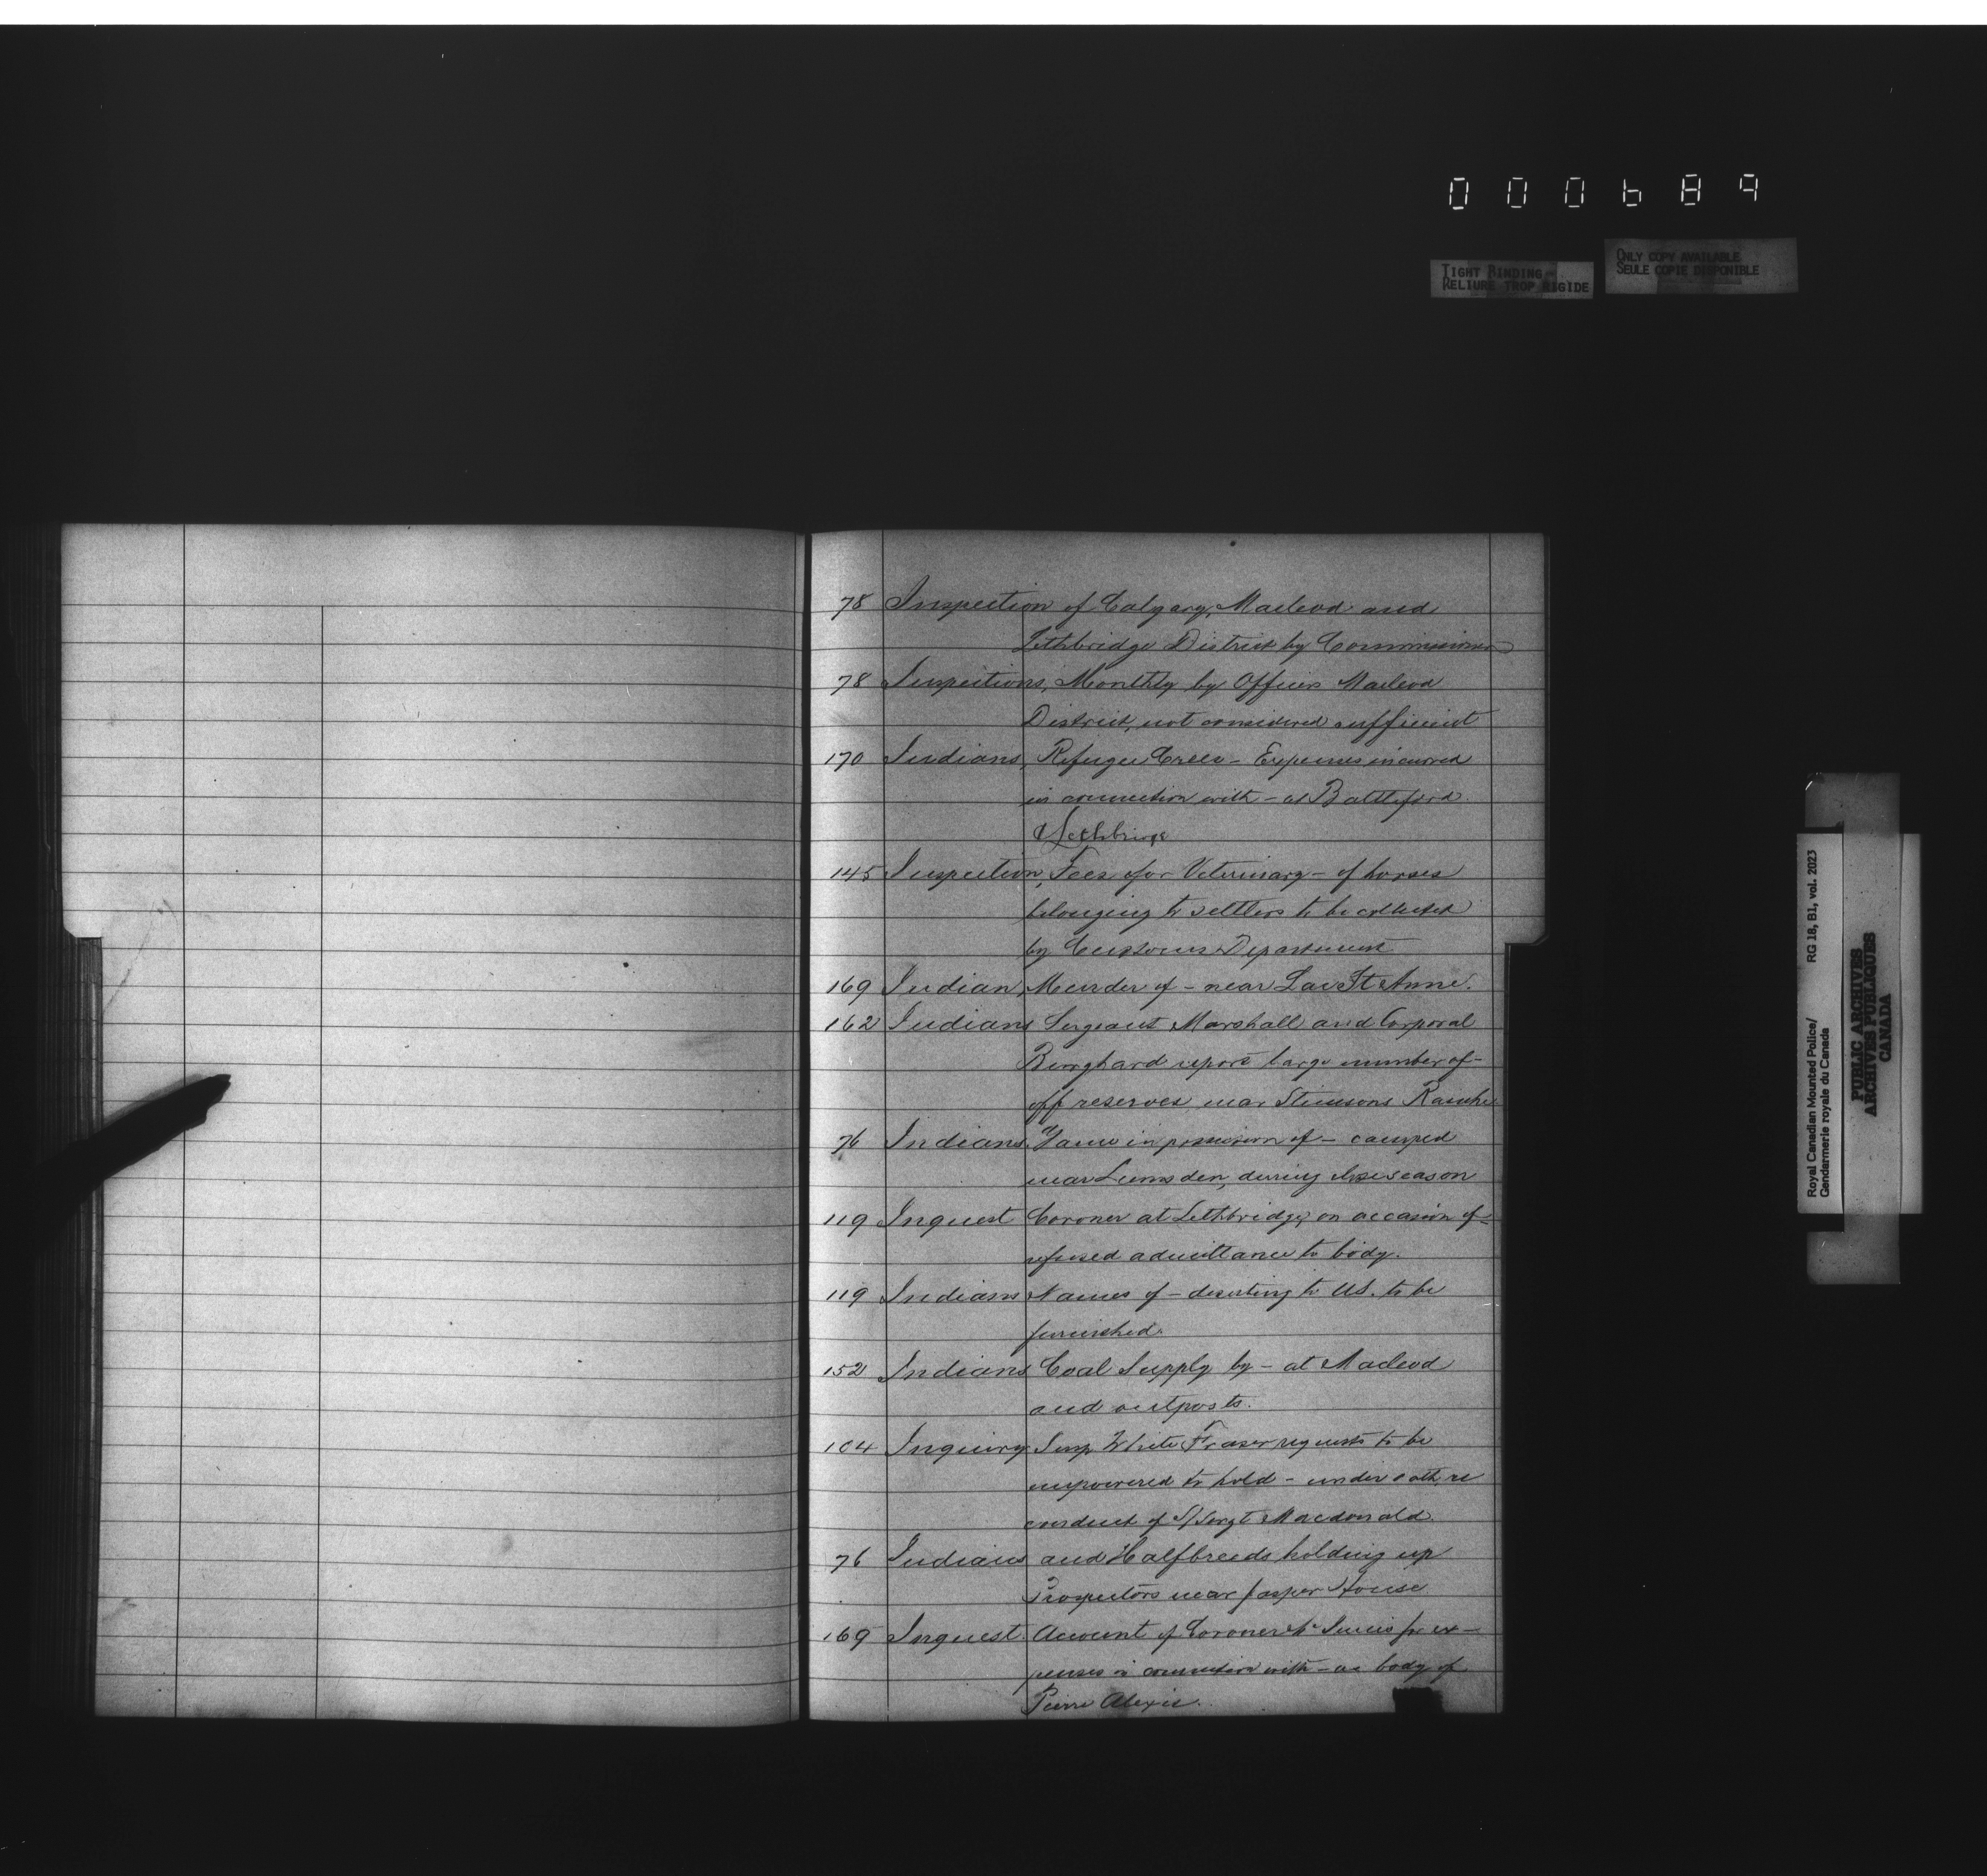 000689
TIGHT BINDING
RELIURE TROP RIGIDE
ONLY COPY AVAILABLE
SEULE COPIE DISPONIBLE
78 Inspection of Calgary, Macleod and
Lethbridge District by Commissioner
78 Inspections, Monthly by Officers Macleod
District, not considered sufficient
170 Indians, Refugee Crees - Expenses incurred
in connection with - at Battleford
& Lethbridge
145 Inspection, Fees for Veterinary - of horses
belonging to settlers to be collected
by Customs Department
169 Indian, Murder of - near Lac St Anne.
162 Indians Sergeant Marshall and Corporal
report large number of -
off reserves near Stimsons Ranche
76 Indians. Game in possession of - camped
near Lumsden, during close season
119 Inquest Coroner at Lethbridge, on occasion of -
refused admittance to body.
119 Indians Names of - deserting to U.S. to be
furnished.
152 Indians Coal Supply by - at Macleod
and outposts.
104 Inquiry Insp White Fraser requests to be
empowered to hold - under oath, re
conduct of S/Sergt Macdonald.
76 Indians and Halfbreeds holding up
Prospectors near Jasper House
169 Inquest. Account of Coroner for ex-
penses in connection with - on body of
Pierre Alexis.
Royal Canadian Mounted Police/ RG 18, B1, vol. 2023
Gendarmerie royale du Canada
PUBLIC ARCHIVES
ARCHIVES PUBLIQUES
CANADA